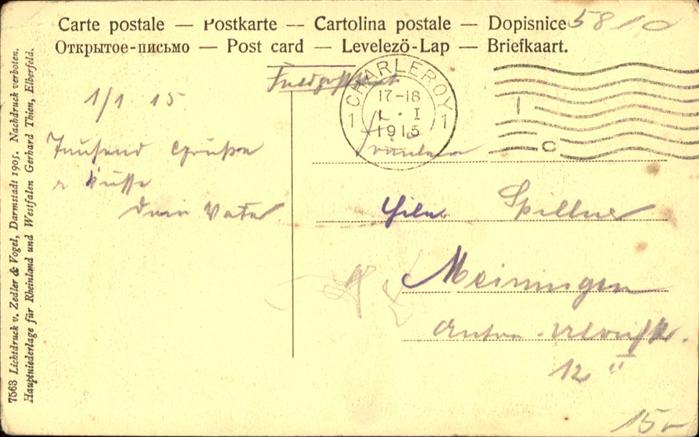 Carte postale — Postkarte — Cartolina postale — Dopisnice
Открытое-письмо — Post card — Levelező-Lap — Briefkaart.
5810
Feldpostkarte
CHARLEROY
17-18
1. I
1915
1 1
1/1 15
Tausend Grüße
u Küsse
Dein Vater
Fräulein
Spillner
Meiningen
12 II
15
7563 Lichtdruck v. Zedler & Vogel, Darmstadt 1905. Nachdruck verboten.
Hauptniederlage für Rheinland und Westfalen Gerhard Thien, Elberfeld.